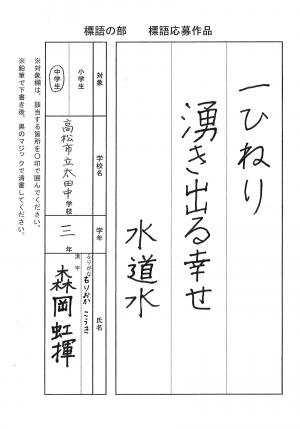 標語の部　標語応募作品
一ひねり
湧き出る幸せ
水道水
対象
小学生
中学生
学校名
高松市立太田中学校
学年
三年
氏名
ふりがな
もりおか こうき
漢字
森岡虹揮
※対象欄は、該当する箇所を〇印で囲んでください。
※鉛筆で下書き後、黒のマジックで清書してください。